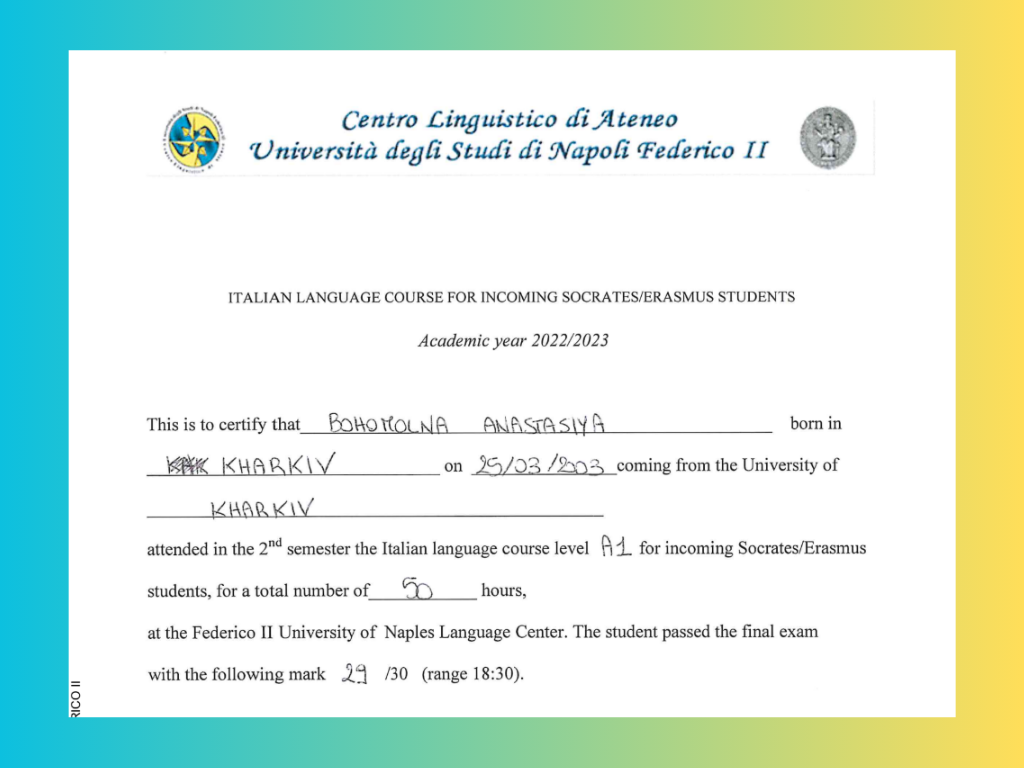 Centro Linguistico di Ateneo
Università degli Studi di Napoli Federico II
ITALIAN LANGUAGE COURSE FOR INCOMING SOCRATES/ERASMUS STUDENTS
Academic year 2022/2023
This is to certify that BOHOMOLNA ANASTASIYA born in
KHARKIV on 25/03/2003 coming from the University of
KHARKIV
attended in the 2nd semester the Italian language course level A1 for incoming Socrates/Erasmus
students, for a total number of 50 hours,
at the Federico II University of Naples Language Center. The student passed the final exam
with the following mark 29 /30 (range 18:30).
RICO II